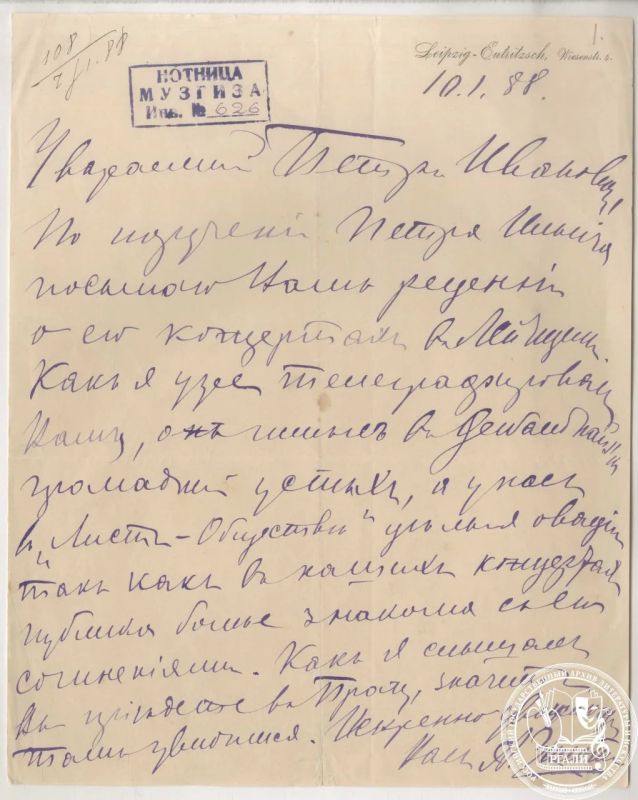 1.
108
7/1.88
Leipzig-Eutritzsch, Wiesenstr. 4.
НОТНИЦА
МУЗГИЗА
Инв. № 626
10.1.88.
Уважаемый Петръ Ивановичъ!
По порученію Петра Ильича
посылаю Вамъ рецензіи
о его концертахъ въ Лейпцигѣ.
Какъ я уже телеграфировалъ
Вамъ, онъ имѣлъ въ Gewandhaus'ѣ
громадный успѣхъ, а у насъ
въ „Листъ-Обществѣ" цѣлыя оваціи
такъ какъ въ нашихъ концертахъ
публика болѣе знакома съ его
сочиненіями. Какъ я слышалъ
Вы пріѣдете въ Прагу, значитъ
тамъ увидимся. Искренно
Вамъ А.
РГАЛИ